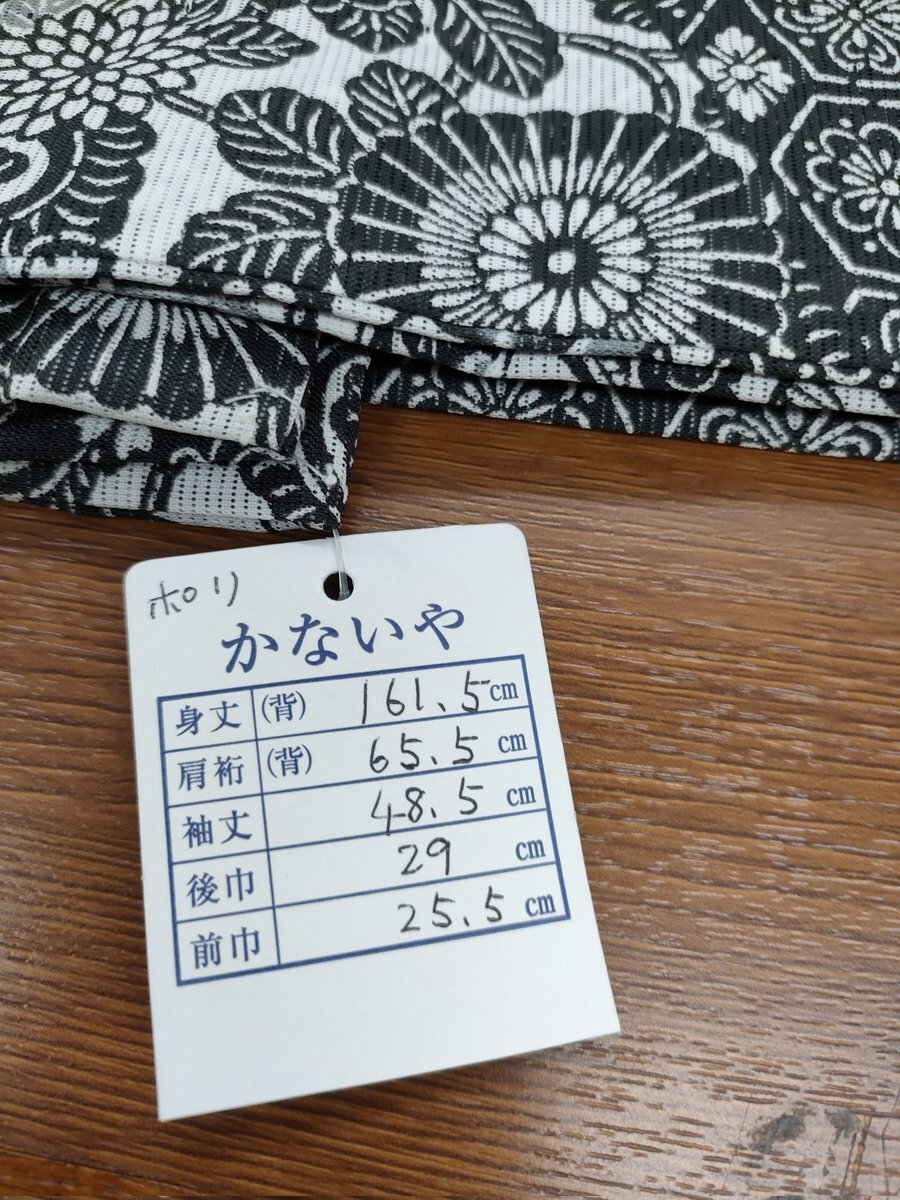 ポリ
かないや
身丈 (背) 161.5cm
肩裄 (背) 65.5 cm
袖丈 48.5 cm
後巾 29 cm
前巾 25.5 cm